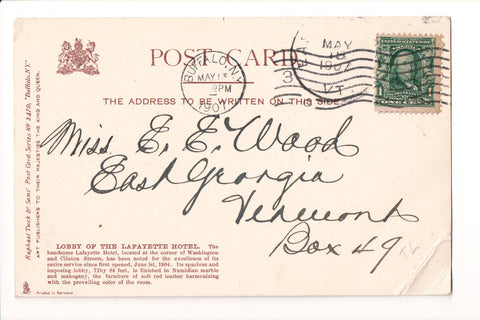 POST CARD
BUFFALO, N.Y.
MAY 13
PM
1907
MAY
1907
VT.
THE ADDRESS TO BE WRITTEN ON THIS SIDE.
Miss E. E. Wood
East Georgia
Vermont
Box 49
LOBBY OF THE LAFAYETTE HOTEL. The
handsome Lafayette Hotel, located at the corner of Washington
and Clinton Streets, has been noted for the excellence of its
entire service since first opened, June 1st, 1904. Its spacious and
imposing lobby, 72 by 66 feet, is finished in Numidian marble
and mahogany, the furniture of soft red leather harmonizing
with the prevailing color of the room.
Printed in Germany
Raphael Tuck & Sons' Post Card Series No. 2470, "Buffalo, N.Y."
ART PUBLISHERS TO THEIR MAJESTIES THE KING AND QUEEN.